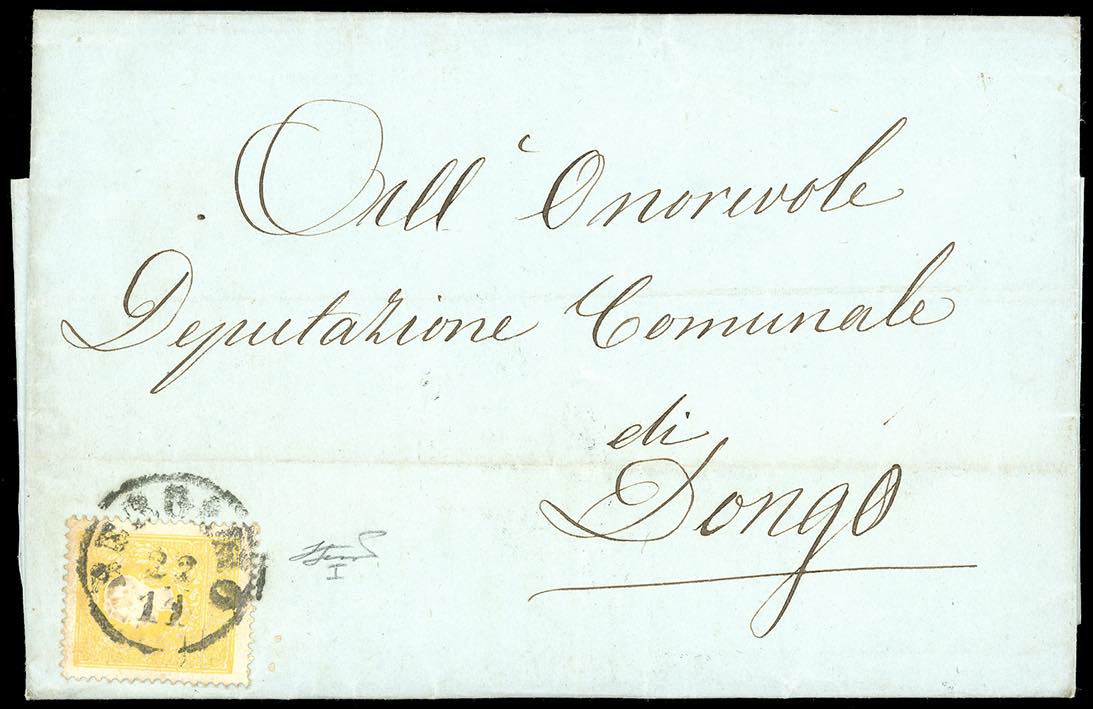 All' Onorevole
Deputazione Comunale
di
Dongo
22
11
I